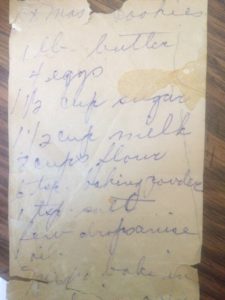 Xmas Cookies
1 lb. butter
4 eggs
1 1/2 cup sugar
1 1/2 cup milk
7 cups flour
tsp. baking powder
1 tsp salt
few drops anise
oil
bake in